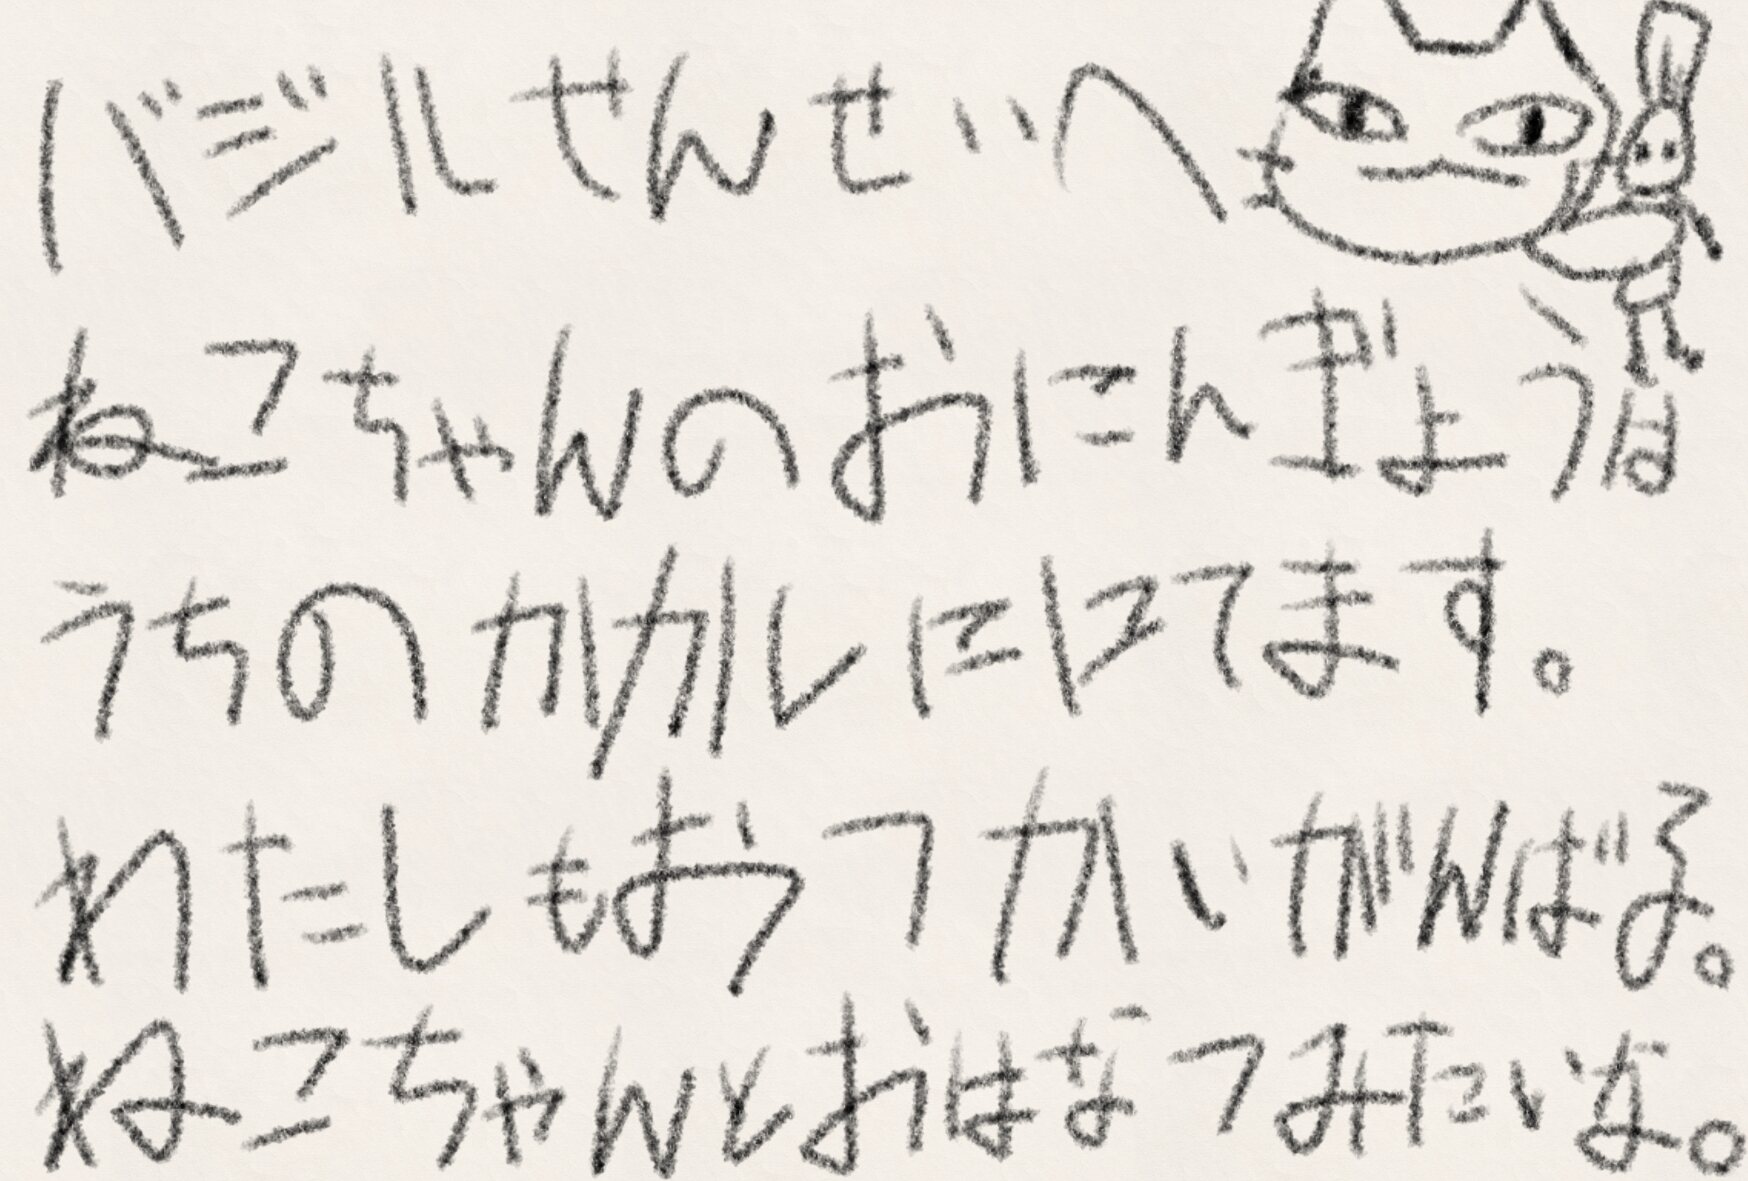 バジルせんせいへ
ねこちゃんのおにんぎょうは
うちのかかしににてます。
わたしもおつかいがんばる。
ねこちゃんとおはなつみたいな。